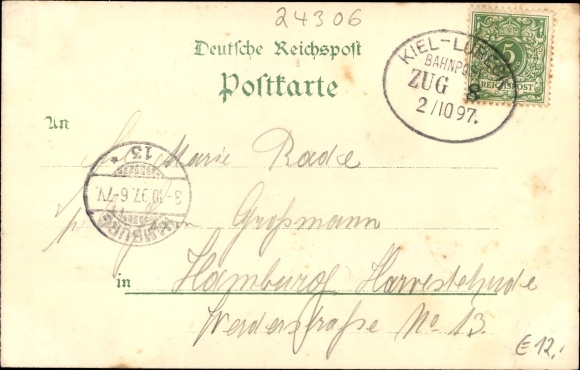 24306
Deutsche Reichspost
Postkarte
KIEL-LUBECK
BAHNPOST
ZUG 8
2/10 97.
5
REICHSPOST
An
Marie Rade
Großmann
in Hamburg Harvestehude
Werderstraße No 13.
HAMBURG
3-10.97.6-7V.
* 13
€12,-